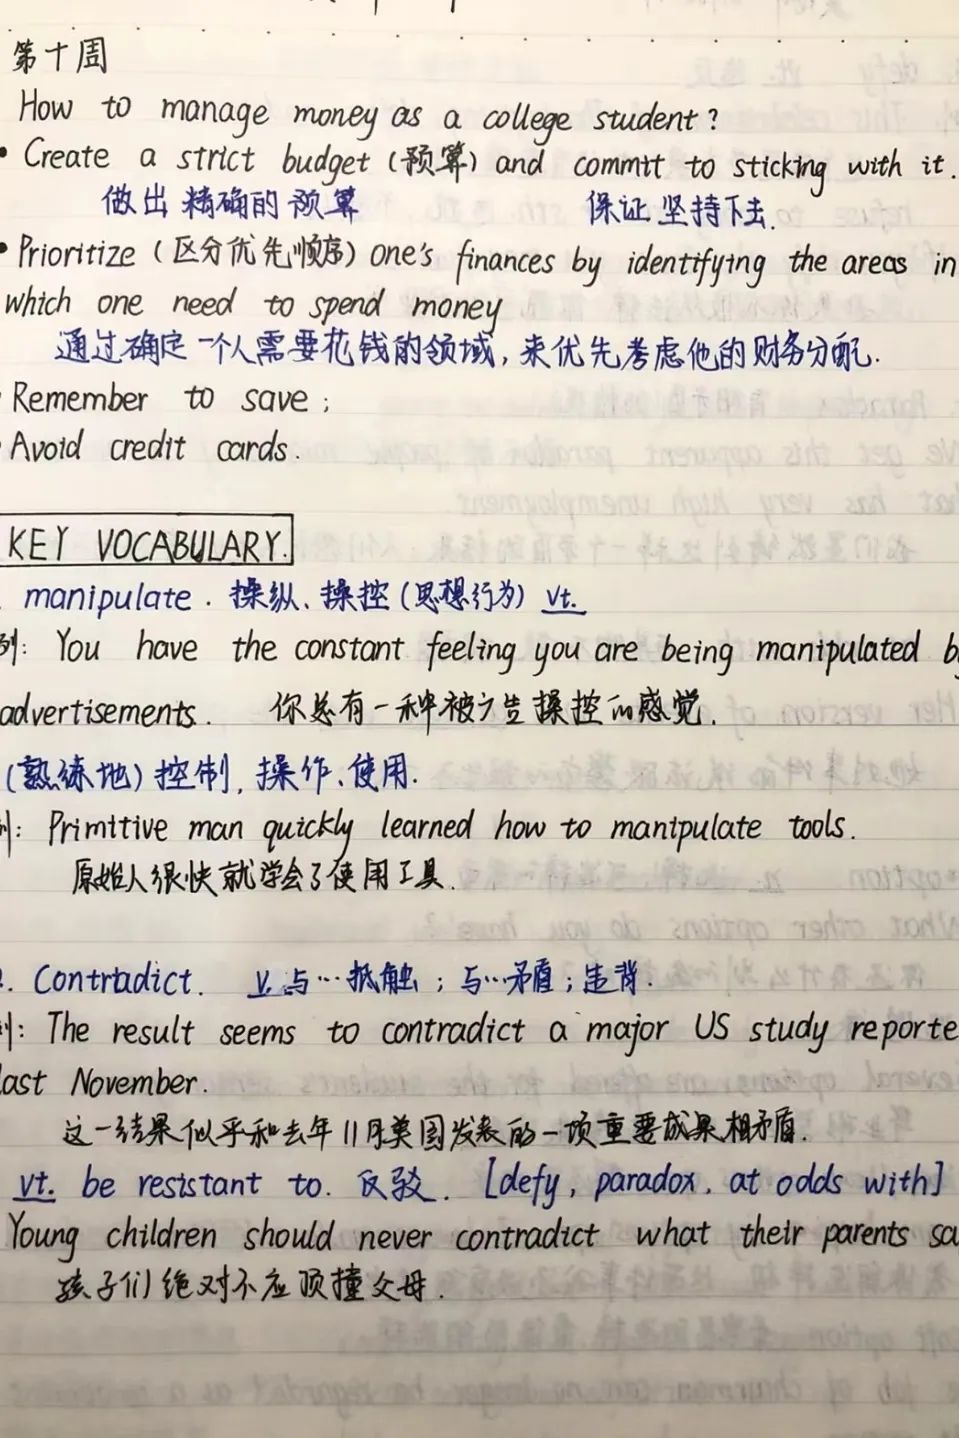 第十周
How to manage money as a college student?
• Create a strict budget (预算) and commit to sticking with it.
做出精确的预算 保证坚持下去.
• Prioritize (区分优先顺序) one's finances by identifying the areas in
which one need to spend money
通过确定一个人需要花钱的领域, 来优先考虑他的财务分配.
Remember to save;
Avoid credit cards.
KEY VOCABULARY.
manipulate. 操纵、操控(思想行为) vt.
例: You have the constant feeling you are being manipulated
advertisements. 你总有一种被广告操控的感觉.
(熟练地)控制, 操作、使用.
例: Primitive man quickly learned how to manipulate tools.
原始人很快就学会了使用工具.
2. Contradict. v. 与…抵触; 与…矛盾; 违背.
例: The result seems to contradict a major US study reporte
last November.
这一结果似乎和去年11月美国发表的一项重要成果相矛盾.
vt. be resistant to. 反驳. [defy, paradox, at odds with]
Young children should never contradict what their parents sa
孩子们绝对不应顶撞父母.